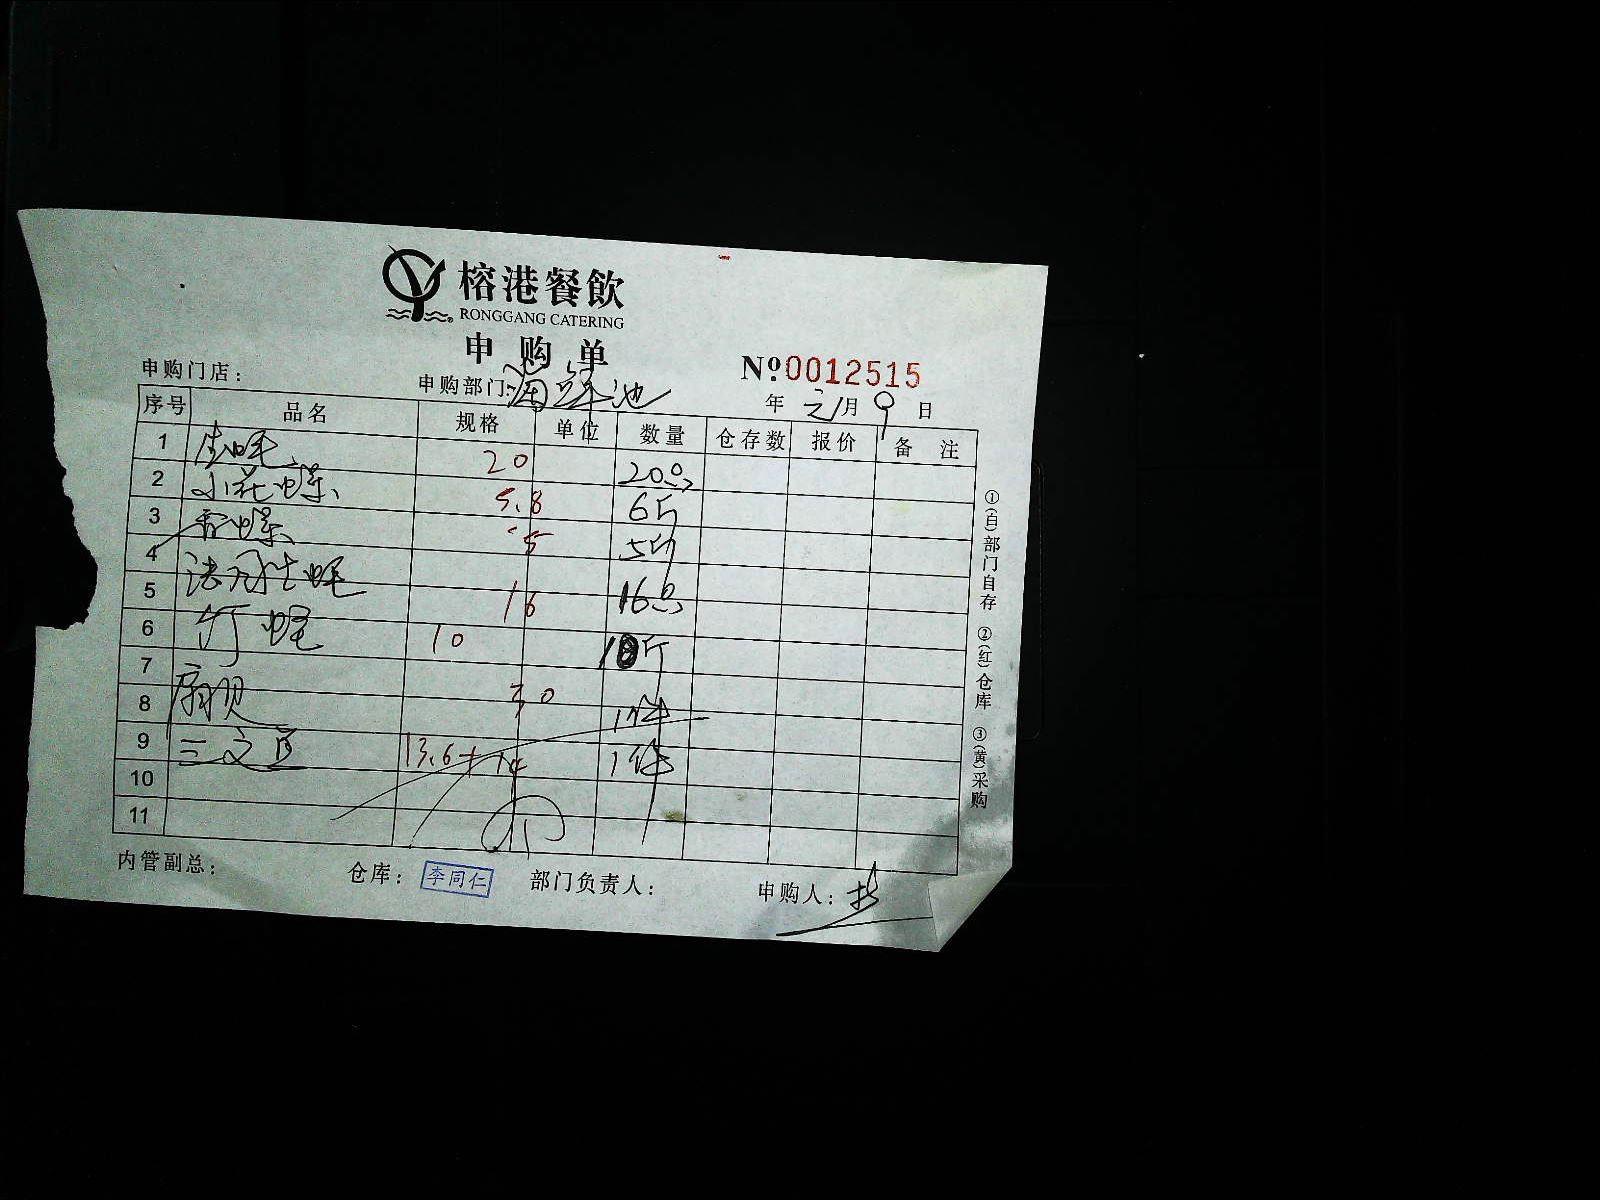 榕港餐飲
RONGGANG CATERING
申购单
№0012515
申购门店：
申购部门：海鲜池
年 元月 9 日
序号 品名 规格 单位 数量 仓存数 报价 备注
1 生蚝 20 20只
2 小花螺 5.8 6斤
3 香螺 5 5斤
4 法国生蚝 16 16只
5
6 竹蛏 10 10斤
7
8 扇贝 30 1件
9 三文鱼 13.6+14 1件
10
11
内管副总：
仓库： 李同仁
部门负责人：
申购人：
①(白)部门自存 ②(红)仓库 ③(黄)采购